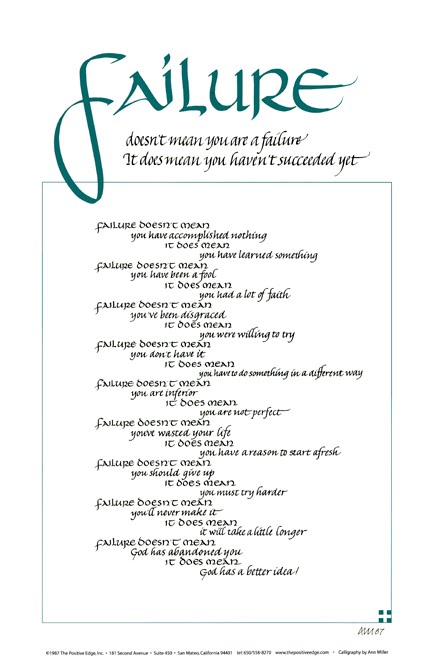 FAILURE
doesn't mean you are a failure
It does mean you haven't succeeded yet
FAILURE DOESN'T MEAN
you have accomplished nothing
IT DOES MEAN
you have learned something
FAILURE DOESN'T MEAN
you have been a fool
IT DOES MEAN
you had a lot of faith
FAILURE DOESN'T MEAN
you've been disgraced
IT DOES MEAN
you were willing to try
FAILURE DOESN'T MEAN
you don't have it
IT DOES MEAN
you have to do something in a different way
FAILURE DOESN'T MEAN
you are inferior
IT DOES MEAN
you are not perfect
FAILURE DOESN'T MEAN
you've wasted your life
IT DOES MEAN
you have a reason to start afresh
FAILURE DOESN'T MEAN
you should give up
IT DOES MEAN
you must try harder
FAILURE DOESN'T MEAN
you'll never make it
IT DOES MEAN
it will take a little longer
FAILURE DOESN'T MEAN
God has abandoned you
IT DOES MEAN
God has a better idea!
©1987 The Positive Edge, Inc. • 181 Second Avenue • Suite 450 • San Mateo, California 94401 tel: 650/558-8270 www.thepositiveedge.com • Calligraphy by Ann Miller